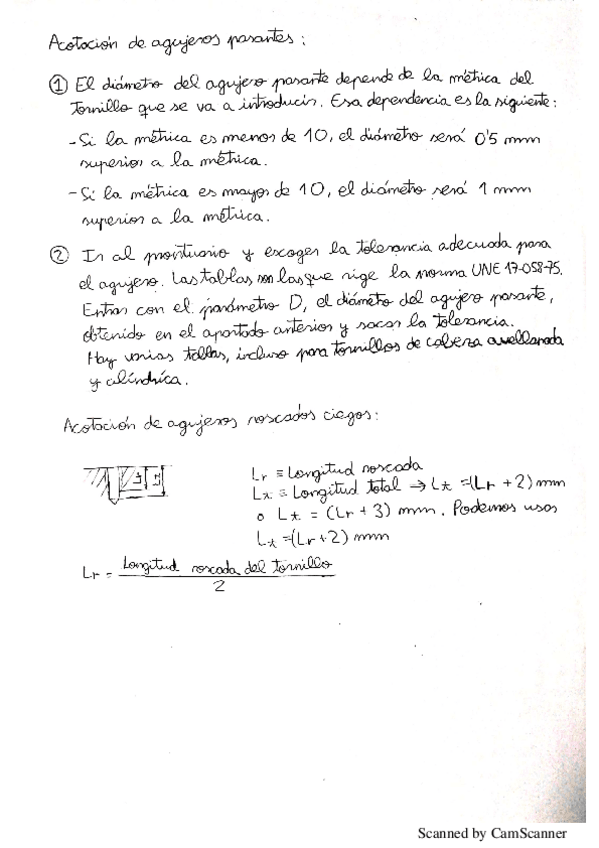 Acotación de agujeros pasantes:
① El diámetro del agujero pasante depende de la métrica del
tornillo que se va a introducir. Esa dependencia es la siguiente:
- Si la métrica es menor de 10, el diámetro será 0'5 mm
superior a la métrica.
- Si la métrica es mayor de 10, el diámetro será 1 mm
superior a la métrica.
② Ir al prontuario y escoger la tolerancia adecuada para
el agujero. Las tablas son las que rige la norma UNE 17-058-75.
Entrar con el parámetro D, el diámeto del agujero pasante,
obtenido en el apartado anterior y sacar la tolerancia.
Hay varias tablas, incluso para tornillos de cabeza avellanada
y cilíndrica.
Acotación de agujeros roscados ciegos:
Lr ≡ Longitud roscada
Lt ≡ Longitud total → Lt = (Lr + 2) mm
o Lt = (Lr + 3) mm. Podemos usar
Lt = (Lr + 2) mm
Lr = Longitud roscada del tornillo
2
Scanned by CamScanner